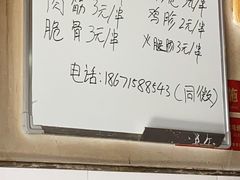 肉筋 3元/串
脆骨 3元/串
鸡肠 2元/串
火腿肠 3元/串
电话:18671588543(同微)